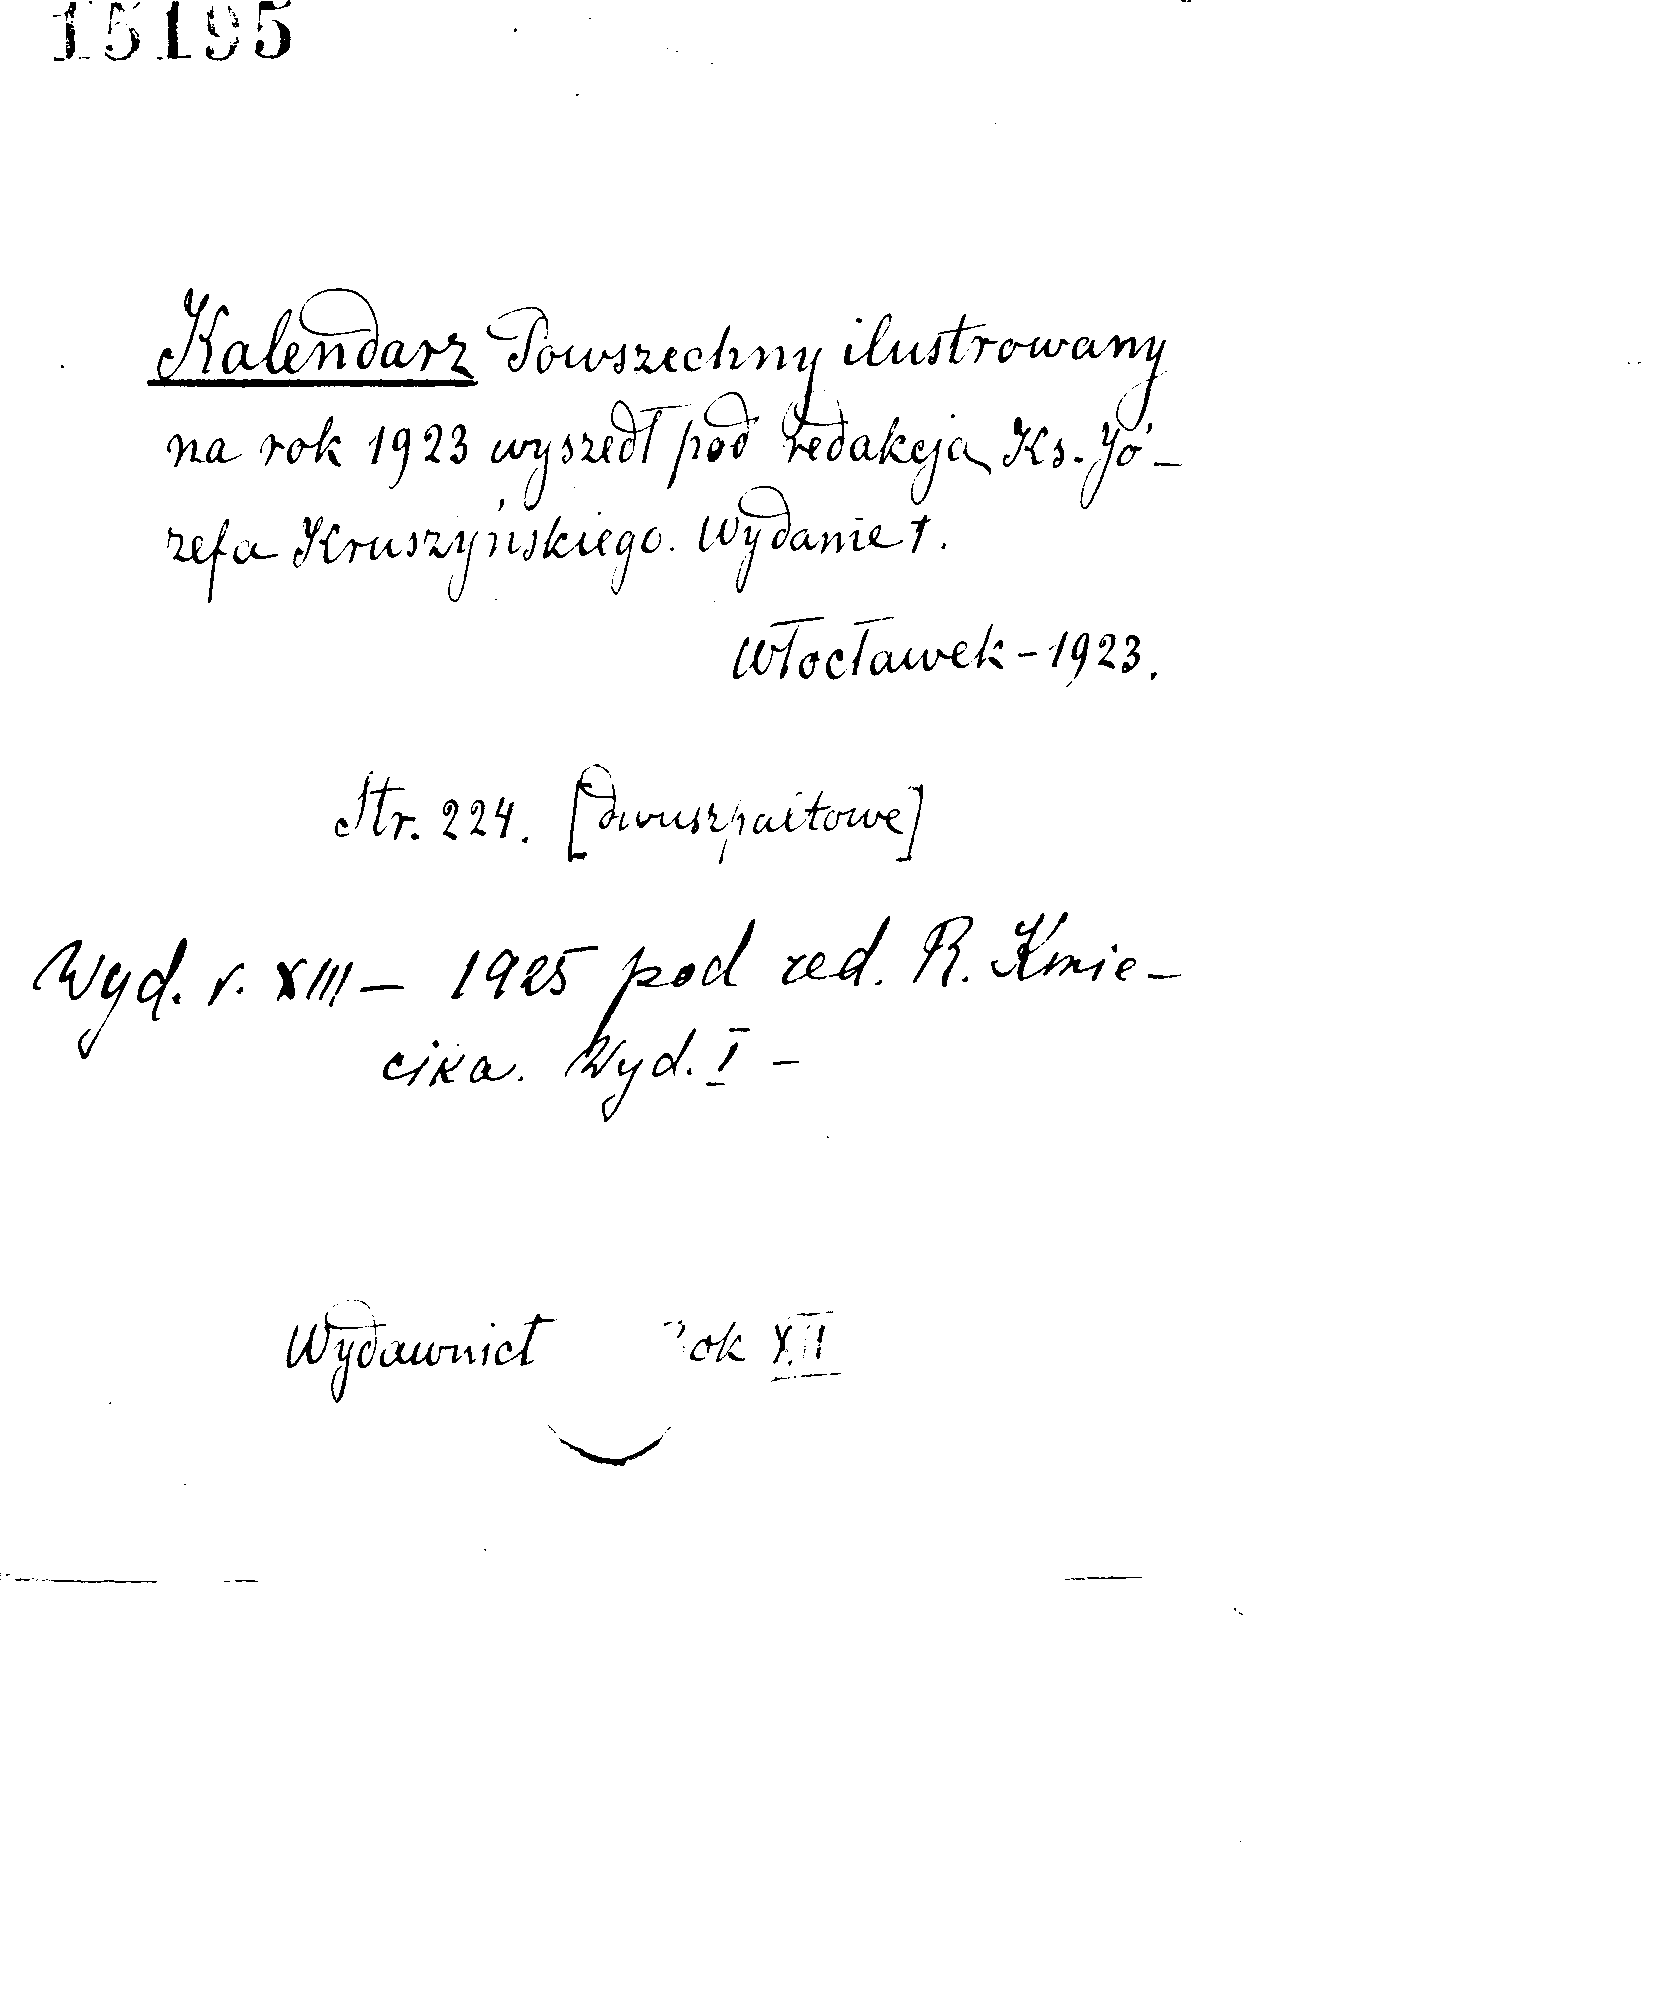 15195
Kalendarz Powszechny ilustrowany
na rok 1923 wyszedł pod redakcją Ks. Jó-
zefa Kruszyńskiego. Wydanie 1.
Włocławek - 1923.
Str. 224. [dwuszpaltowe]
Wyd. r. XIII - 1925 pod red. R. Kmie-
cika. Wyd. I -
Wydawnict ok XII